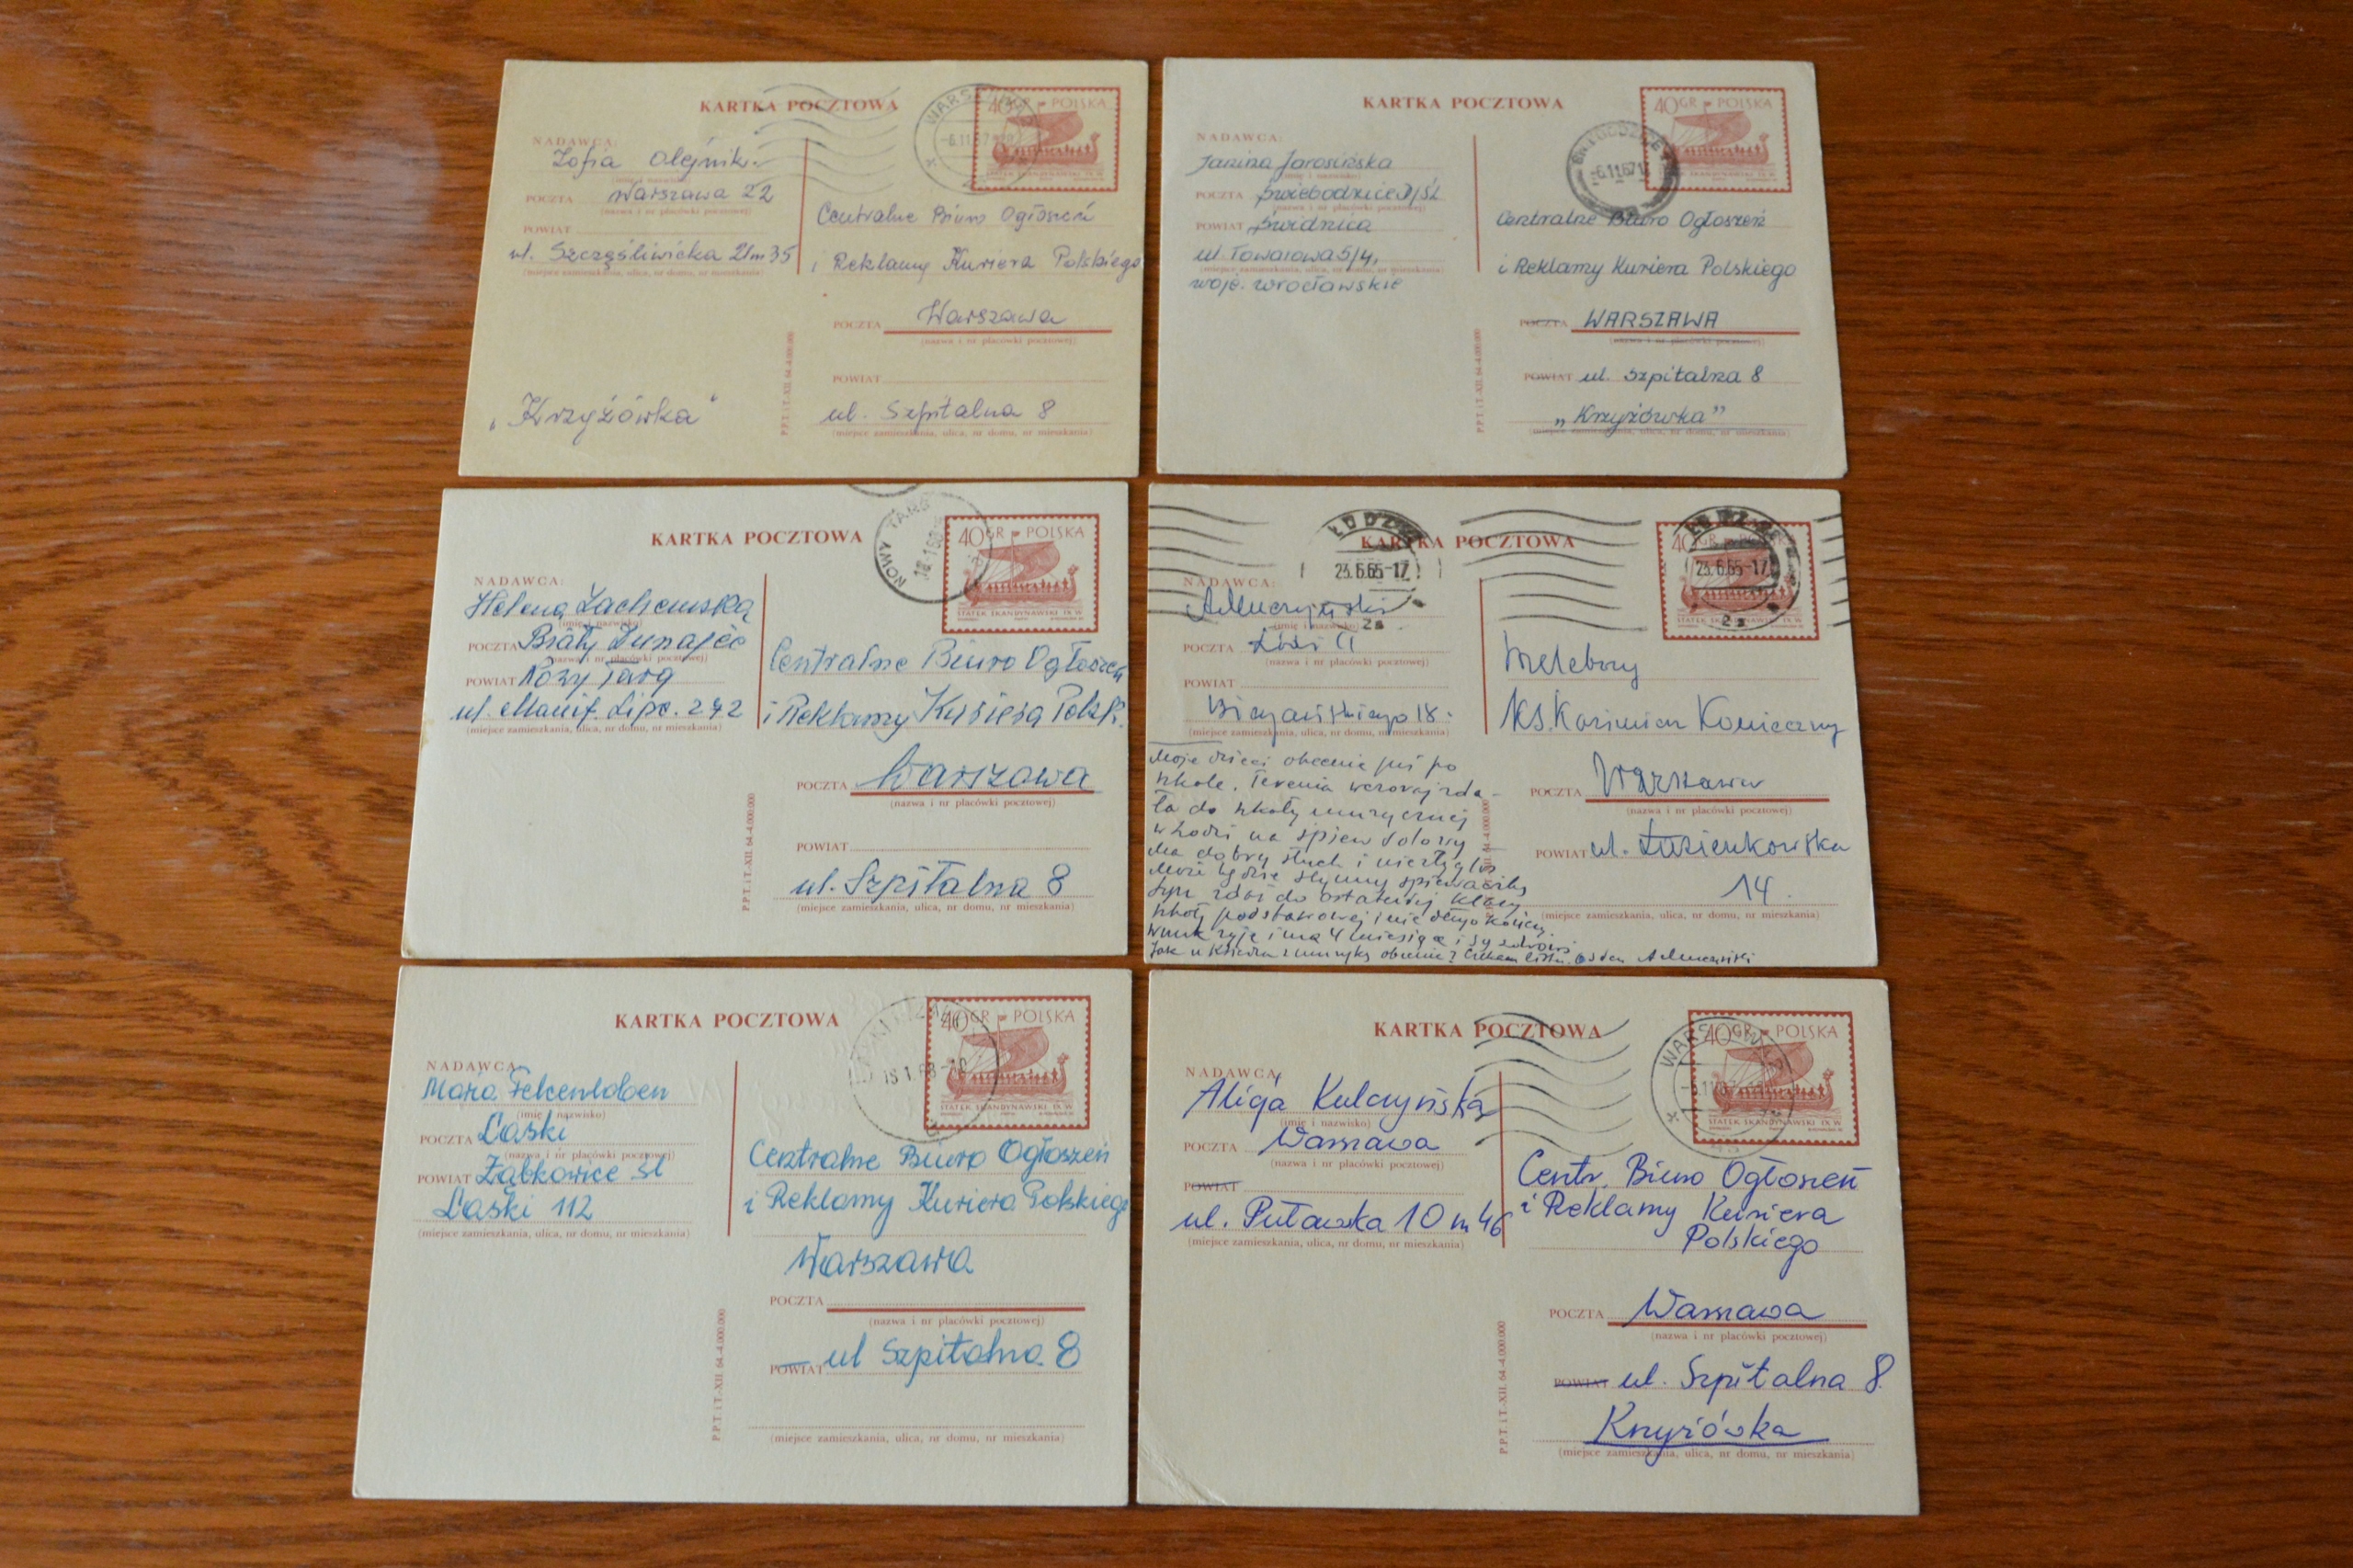 KARTKA POCZTOWA
40 GR POLSKA
WARSZAWA
-6.11.67
NADAWCA:
Zofia Olejnik
(imię i nazwisko)
POCZTA Warszawa 22
(nazwa i nr placówki pocztowej)
POWIAT
ul. Szczęśliwicka 21m35
(miejsce zamieszkania, ulica, nr domu, nr mieszkania)
Centralne Biuro Ogłoszeń
i Reklamy Kuriera Polskiego
POCZTA Warszawa
(nazwa i nr placówki pocztowej)
POWIAT
ul. Szpitalna 8
(miejsce zamieszkania, ulica, nr domu, nr mieszkania)
„Krzyżówka"
P.P.T. i T.-XII. 64-4.000.000
KARTKA POCZTOWA
40 GR POLSKA
-6.11.67
NADAWCA:
Janina Jarosińska
(imię i nazwisko)
POCZTA Świebodzice D/Śl
(nazwa i nr placówki pocztowej)
POWIAT Świdnica
ul. Towarowa 5/4,
(miejsce zamieszkania, ulica, nr domu, nr mieszkania)
woje. wrocławskie
Centralne Biuro Ogłoszeń
i Reklamy Kuriera Polskiego
POCZTA WARSZAWA
(nazwa i nr placówki pocztowej)
POWIAT ul. Szpitalna 8
„Krzyżówka"
(miejsce zamieszkania, ulica, nr domu, nr mieszkania)
P.P.T. i T.-XII. 64-4.000.000
KARTKA POCZTOWA
40 GR POLSKA
STATEK SKANDYNAWSKI IX W
NOWY TARG
18.1.68
NADAWCA:
Helena
(imię i nazwisko)
POCZTA Biały Dunajec
(nazwa i nr placówki pocztowej)
POWIAT Nowy Targ
ul. Manif. Lipc. 242
(miejsce zamieszkania, ulica, nr domu, nr mieszkania)
Centralne Biuro Ogłoszeń
i Reklamy Kuriera Polsk.
POCZTA Warszawa
(nazwa i nr placówki pocztowej)
POWIAT
ul. Szpitalna 8
(miejsce zamieszkania, ulica, nr domu, nr mieszkania)
P.P.T. i T.-XII. 64-4.000.000
KARTKA POCZTOWA
40 GR POLSKA
ŁÓDŹ
23.6.65-17
2a
ŁÓDŹ
23.6.65-17
2a
NADAWCA:
(imię i nazwisko)
POCZTA Łódź 11
(nazwa i nr placówki pocztowej)
POWIAT
18
(miejsce zamieszkania, ulica, nr domu, nr mieszkania)
Wielebny
Ks. Kazimierz Konieczny
POCZTA Warszawa
(nazwa i nr placówki pocztowej)
POWIAT ul. Łazienkowska
14
(miejsce zamieszkania, ulica, nr domu, nr mieszkania)
Moje dzieci obecnie już po
szkole. Terenia wczoraj zda-
ła do szkoły muzycznej
w Łodzi na śpiew solowy
Ma dobry słuch i niezły głos
Może będzie słynną śpiewaczką
Syn zdał do ostatniej klasy
szkoły podstawowej i nie długo kończy.
Wnuk żyje i ma 4 miesiące i są zdrowi
Jak u Księdza z muzyką obecnie? Czekam listu.
KARTKA POCZTOWA
40 GR POLSKA
STATEK SKANDYNAWSKI IX W
NADAWCA:
Maria
(imię i nazwisko)
POCZTA Laski
(nazwa i nr placówki pocztowej)
POWIAT Ząbkowice Śl
Laski 112
(miejsce zamieszkania, ulica, nr domu, nr mieszkania)
Centralne Biuro Ogłoszeń
i Reklamy Kuriera Polskiego
Warszawa
POCZTA
(nazwa i nr placówki pocztowej)
POWIAT ul Szpitalna 8
(miejsce zamieszkania, ulica, nr domu, nr mieszkania)
P.P.T. i T.-XII. 64-4.000.000
KARTKA POCZTOWA
40 GR POLSKA
STATEK SKANDYNAWSKI IX W
WARSZAWA
NADAWCA:
Alicja Kulczyńska
(imię i nazwisko)
POCZTA Warszawa
(nazwa i nr placówki pocztowej)
POWIAT
ul. Puławska 10 m 46
(miejsce zamieszkania, ulica, nr domu, nr mieszkania)
Centr. Biuro Ogłoszeń
i Reklamy Kuriera
Polskiego
POCZTA Warszawa
(nazwa i nr placówki pocztowej)
POWIAT ul. Szpitalna 8.
Krzyżówka
(miejsce zamieszkania, ulica, nr domu, nr mieszkania)
P.P.T. i T.-XII. 64-4.000.000